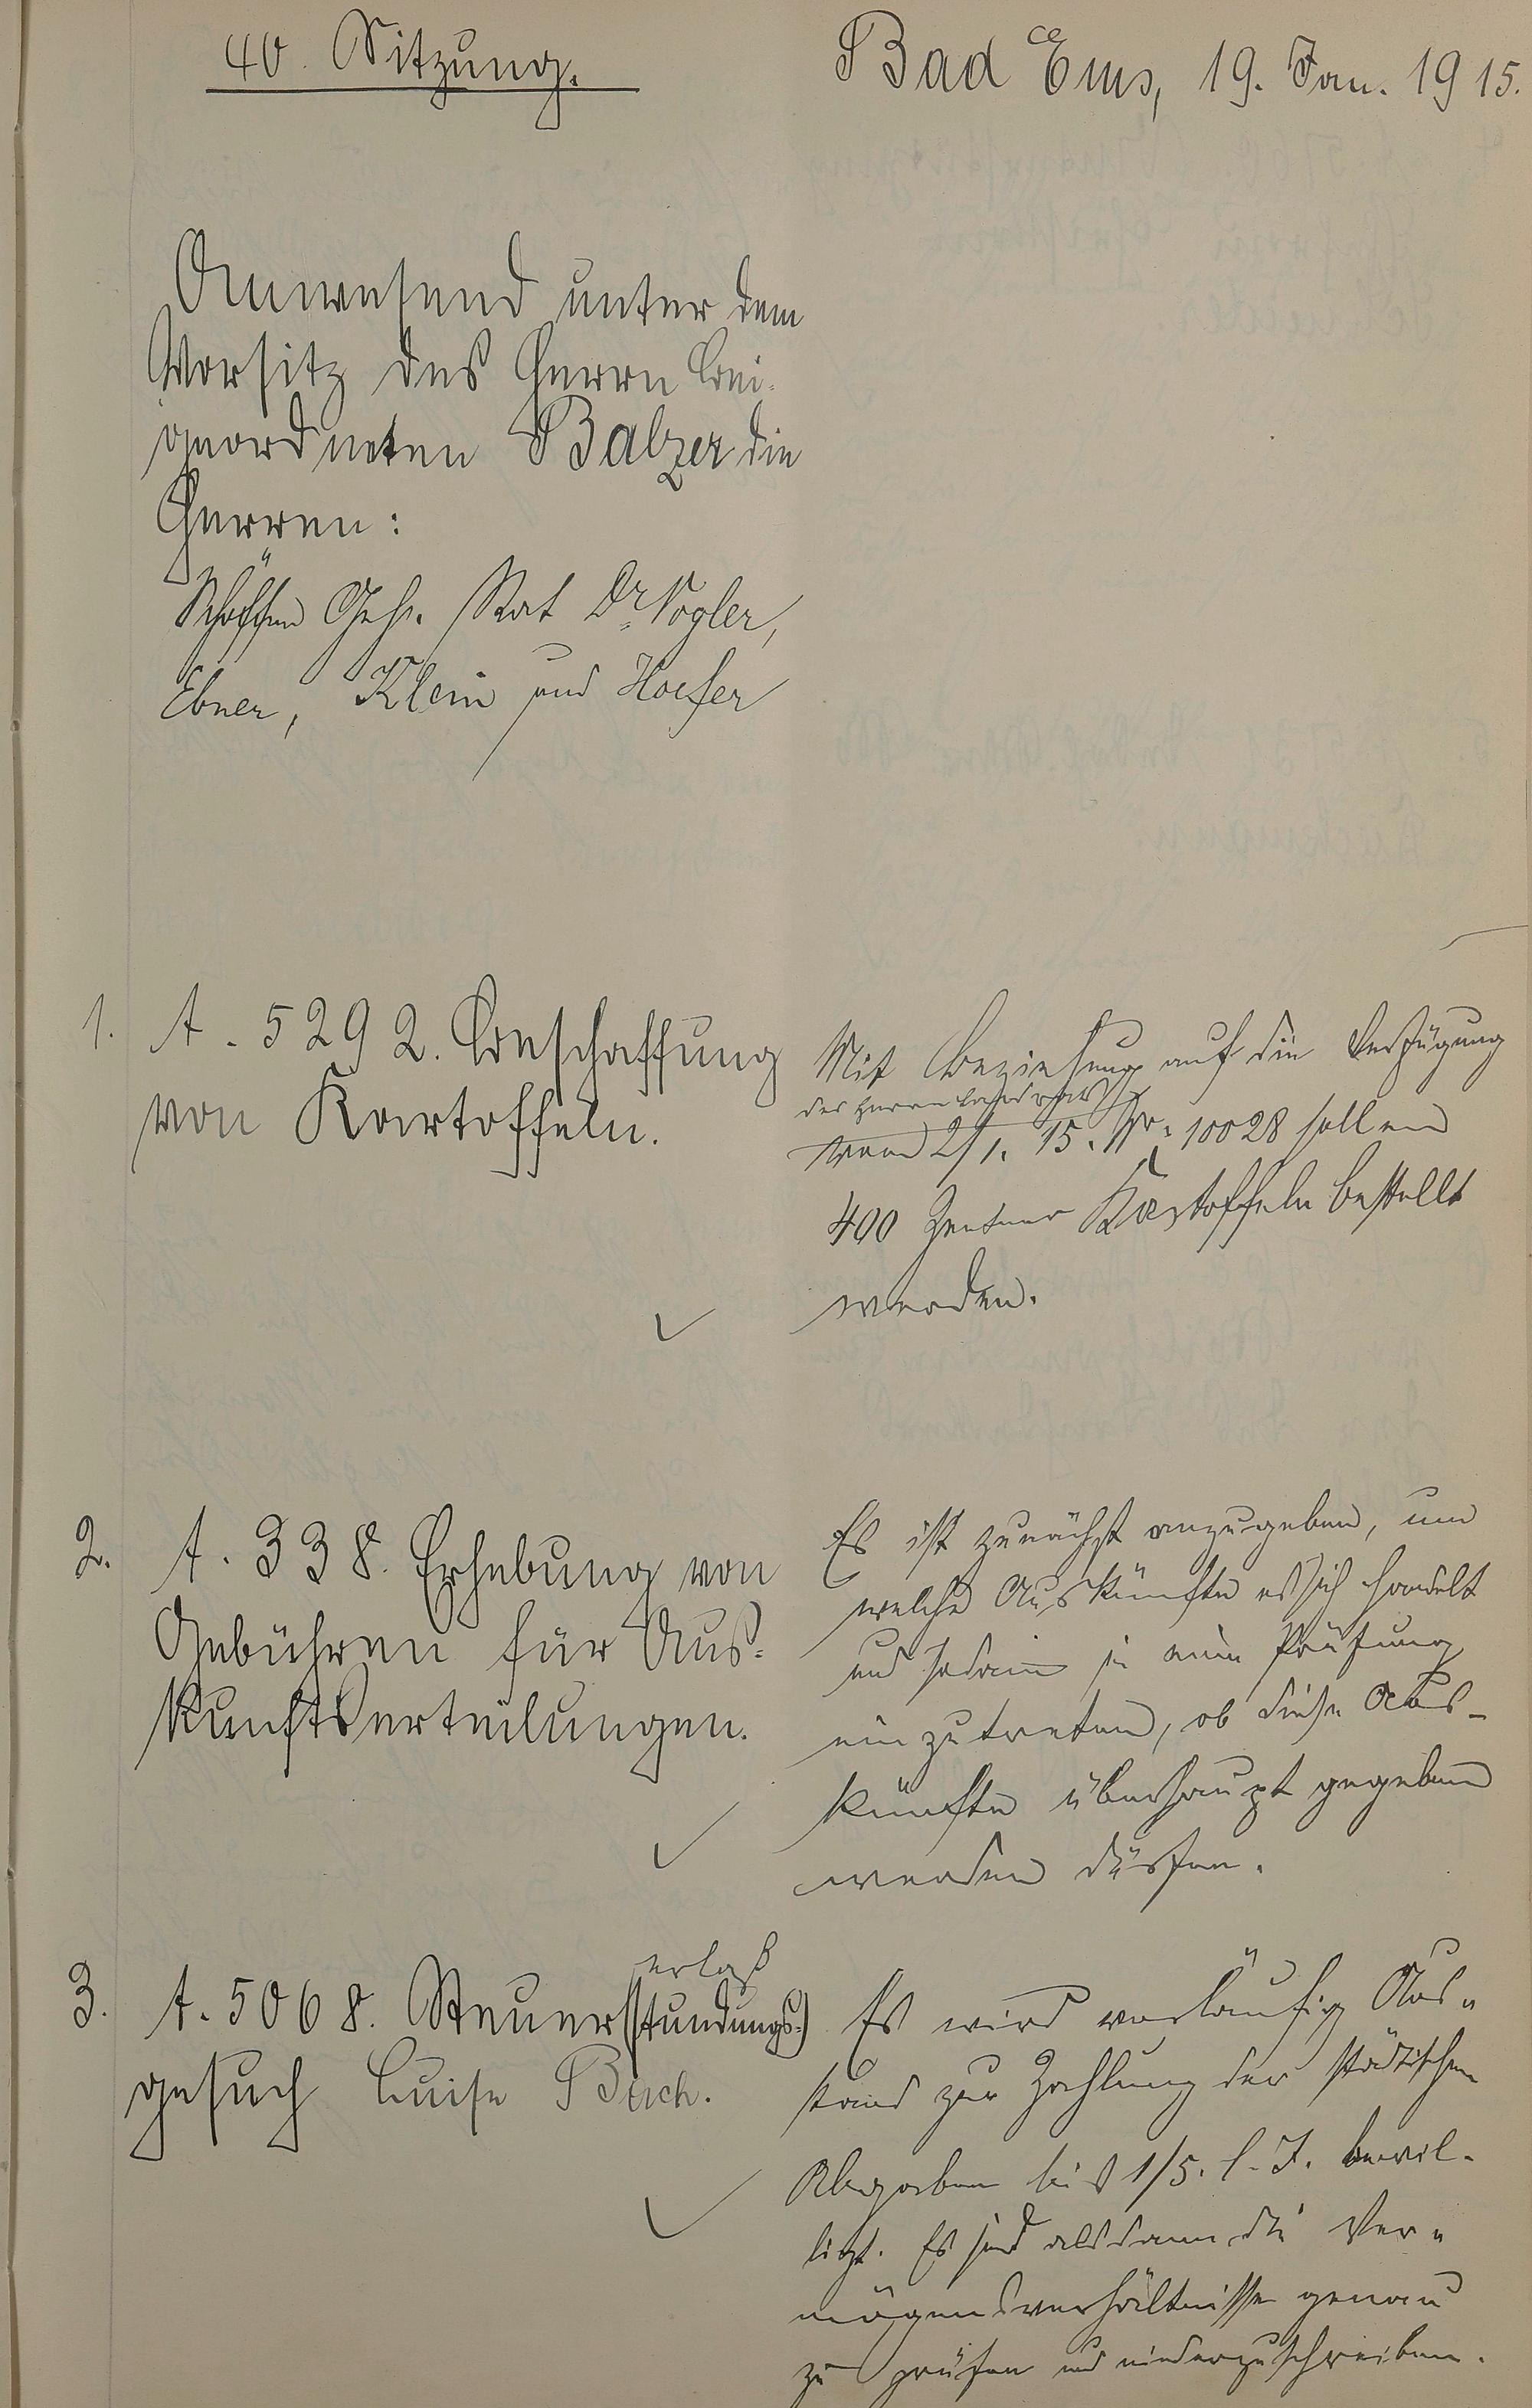 40. Sitzung.
Bad Ems, 19. Jan. 1915.
Anwesend unter dem
Vorsitz des Herrn Bei-
geordneten Balzer die
Herren:
Schöffen Geh. Rat Dr. Vogler,
Ebner, Klein und Hoefer
1. A. 5292. Beschaffung
von Kartoffeln.
Mit Beziehung auf die Verfügung
des Herrn Landrats
vom 2/1. 15. Nr. 10028 sollen
400 Zentner Kartoffeln bestellt
werden.
2. A. 338. Erhebung von
Gebühren für Aus-
kunftserteilungen.
Es ist zunächst anzugeben, um
welche Auskünfte es sich handelt
und sodann in eine Prüfung
einzutreten, ob diese Aus-
künfte überhaupt gegeben
werden dürfen.
erlaß
3. A. 5068. Steuer(stundungs-)
gesuch Luise Buch.
Es wird vorläufig Aus-
stand zur Zahlung der städtischen
Abgaben bis 1/5. l. J. bewil-
ligt. Es sind alsdann die Ver-
mögensverhältnisse genau
zu prüfen und niederzuschreiben.